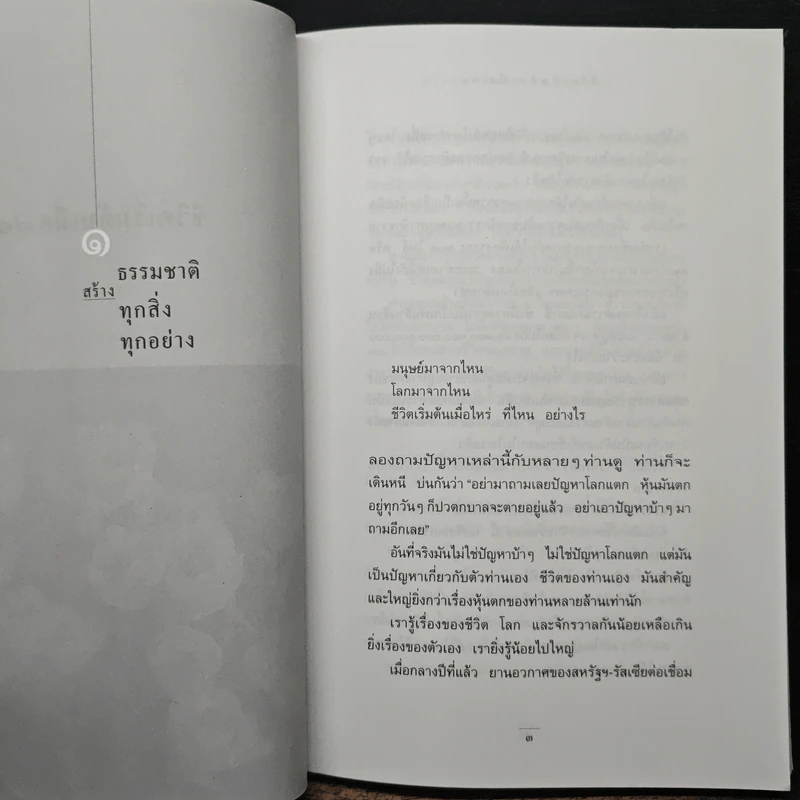 ๑
ธรรมชาติ
สร้าง
ทุกสิ่ง
ทุกอย่าง
มนุษย์มาจากไหน
โลกมาจากไหน
ชีวิตเริ่มต้นเมื่อไหร่ ที่ไหน อย่างไร
ลองถามปัญหาเหล่านี้กับหลายๆ ท่านดู ท่านก็จะ
เดินหนี บ่นกันว่า “อย่ามาถามเลยปัญหาโลกแตก หุ้นมันตก
อยู่ทุกวันๆ ก็ปวดกบาลจะตายอยู่แล้ว อย่าเอาปัญหาบ้าๆ มา
ถามอีกเลย”
อันที่จริงมันไม่ใช่ปัญหาบ้าๆ ไม่ใช่ปัญหาโลกแตก แต่มัน
เป็นปัญหาเกี่ยวกับตัวท่านเอง ชีวิตของท่านเอง มันสำคัญ
และใหญ่ยิ่งกว่าเรื่องหุ้นตกของท่านหลายล้านเท่านัก
เรารู้เรื่องของชีวิต โลก และจักรวาลกันน้อยเหลือเกิน
ยิ่งเรื่องของตัวเอง เรายิ่งรู้น้อยไปใหญ่
เมื่อกลางปีที่แล้ว ยานอวกาศของสหรัฐฯ-รัสเซียต่อเชื่อม
๓